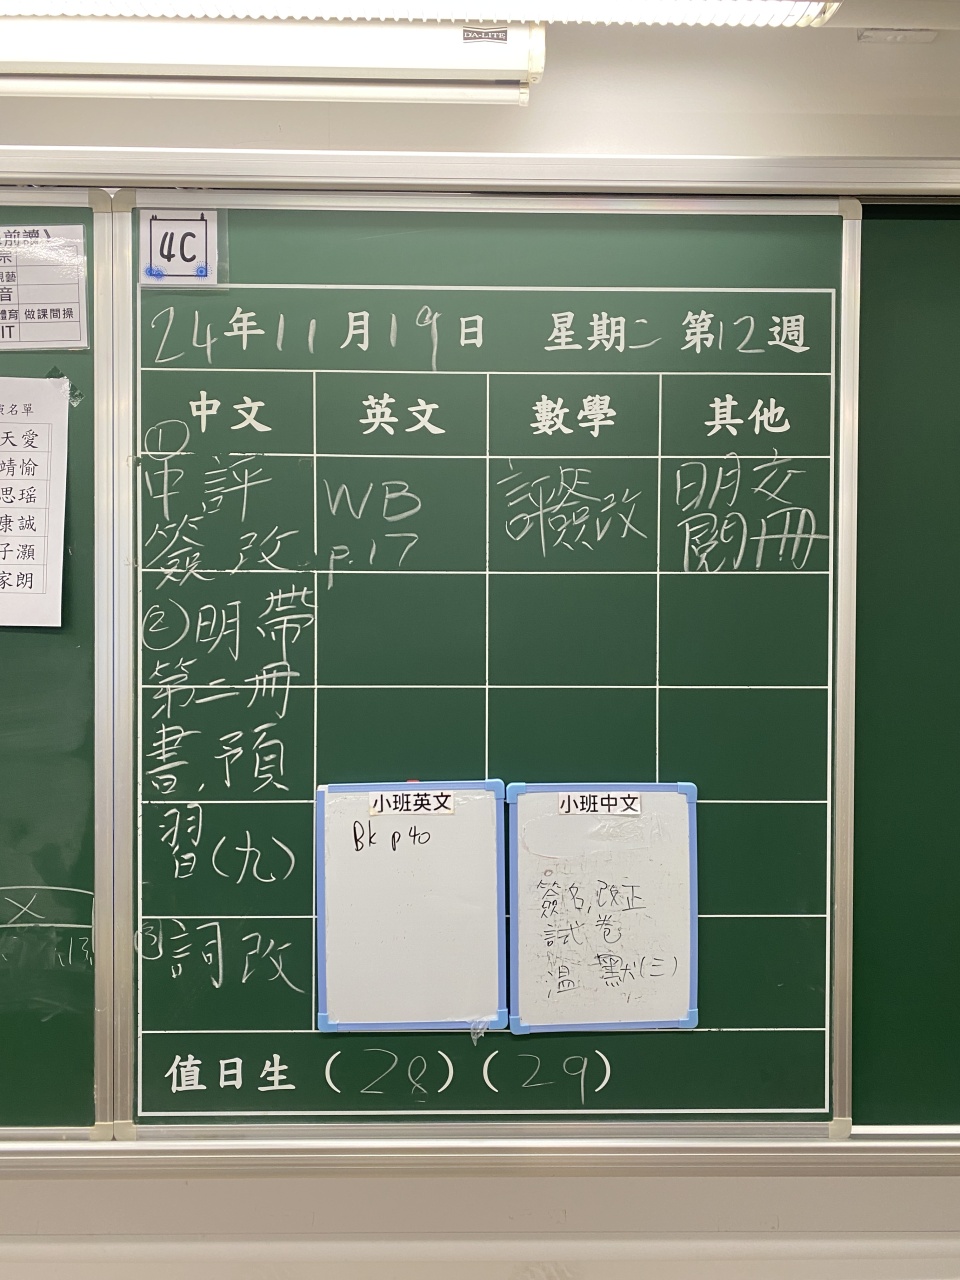 DA-LITE
前讀）
宗
視藝
音
體育 做課間操
IT
名單
天愛
靖愉
思瑶
康誠
子灝
家朗
4C
24年11月19日 星期二 第12週
中文 英文 數學 其他
①
中評
簽改
②明帶
第二冊
書,預
習(九)
③詞改
WB
p.17
評簽改
明交
閱冊
小班英文
Bk p40
小班中文
簽名,改正
試卷
溫 默(三)
值日生（28）（29）